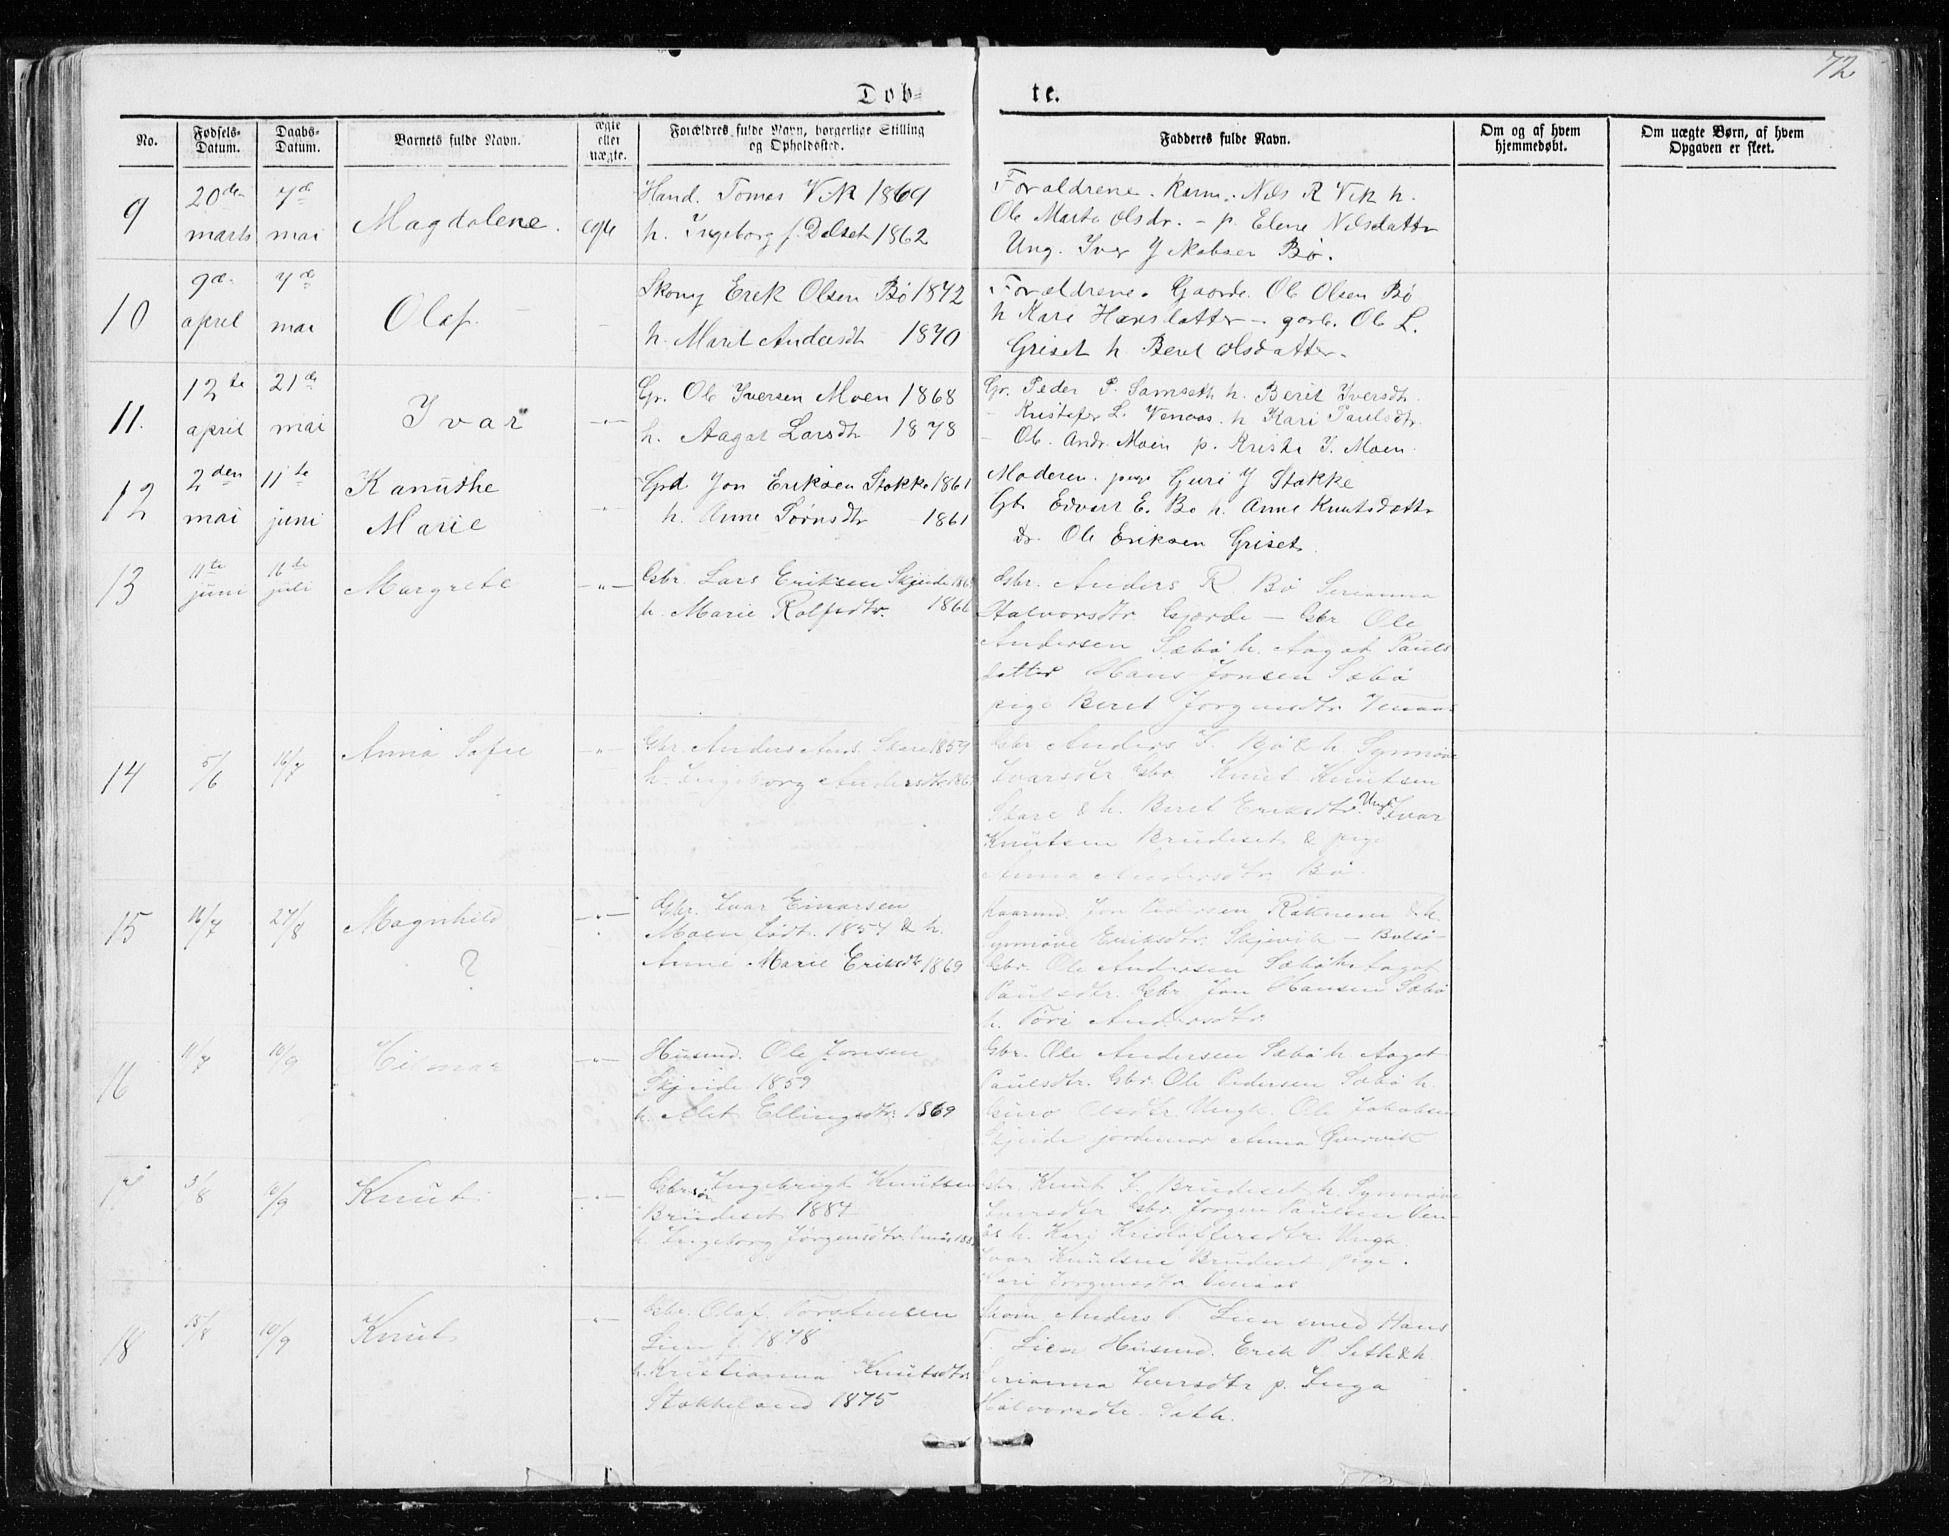 72
Døb-
te.
No.
Fødsels-
Datum.
Daabs-
Datum.
Barnets fulde Navn.
ægte
eller
uægte.
Forældres fulde Navn, borgerlige Stilling
og Opholdssted.
Fadderes fulde Navn.
Om og af hvem
hjemmedøbt.
Om uægte Børn, af hvem
Opgaven er skeet.
9
20de
marts
7de
mai
Magdalene.
egte
Hand. Tomas Vik 1869
h. Ingeborg f. Dalset 1862
Foraldrene. Karm. Nils R Vik h.
Ole Marta Olsdr. - p. Elene Nilsdatter
Ung. Iver Jakobsen Bø.
10
9de
april
7de
mai
Olaf.
-
Skomg Erek Olsen Bø 1872
h. Marit Andersdt 1870
Forældrene. Gaardr. Ole Olsen Bø
h Kari Hansdatter - garb. Ole L.
Griset h. Beret Olsdatter.
11.
12te
april
21de
mai
Ivar
-"-
Gr. Ole Iversen Moen 1868
h. Aagat Larsdtr 1878
Gr. Peder P. Samseth h. Berit Iversdt.
- Kristofer L. Venaas. h Kari Paulsdtr.
- Ole Andr. Moen p. Kristi I. Moen.
12
2den
mai
11te
juni
Kanuthe
Marie
-"-
Grd Jon Eriksen Stokke 1861
h. Anne Sørnsdtr 1861
Moderen. pige Guri J Stokke
Gb. Edvart E. Bø h. Anne Knutsdattr
dr. Ole Eriksen Griset.
13
11te
juni
16de
juli
Margrete
-"-
Gbr. Lars Eriksen Skjeide
h. Marie Rolfsdtr. 1866
Gbr. Anders R. Bø Serianna
Halvorsdtr Gjærde - Gbr Ole
Andersen Sæbø h. Aagot Pauls
datter Hans Jonsen Sæbø
pige Beret Jørgensdtr Venaas
14
5/6
16/7
Anna Sofie
-"-
Gbr. Anders Ands. Skare 1857
h. Ingeborg Andersdtr
Gbr Anders I. Bø & h. Synnøve
Ivarsdtr. Gbr. Knut Knutsen
Skare & h. Beret Eriksdtr. Ungk. Ivar
Knutsen Brudeset & pige
Anna Andersdtr Bø
15
16/7
27/8
Magnhild
?
-"-
Gbr. Ivar Einarsen
Moen født 1857 & h.
Anne Marie Eriksdtr 1869
Kaarmd. Jon Pedersen Røknem & h.
Synnøve Eriksdtr. Skjevik - Bolsø-
Gbr. Ole Andersen Sæbø h. Aagot
Paulsdtr. Gbr Jon Hansen Sæbø
h. Tori Andersdtr
16
11/7
10/9
Hilmar
-"-
Husmd. Ole Jonsen
Skjeide 1859
h. Alet Ellingsdtr. 1869
Gbr. Ole Andersen Sæbø h Aagot
Paulsdtr. Gbr. Ole Pedersen Sæbø h.
Guro Olsdtr Ungk. Ole Jakobsen
Skjeide jordmor Anna Øvervik
17
3/8
10/9
Knut
-"-
Gbrsøn Ingebrigt Knutsen
Brudeset 1884
h. Ingeborg Jørgensdtr. Venås
Gbr. Knut I. Brudeset h. Synnøve
Iversdtr Gbr. Jørgen Paulsen Ven-
ås h. Kari Kristoffersdtr. Ungk.
Ivar Knutsen Brudeset pige.
Kari Jørgensdtr Venaas
18
15/8
10/9
Knut
-"-
Gbr. Olaf Torstensen
Lien f. 1878
h. Kristianna Knutsdtr
Stokkeland 1875
Skom Anders T. Lien smed Hans
T. Lien Husmd. Erik P. Seth & h
Serianna Iversdtr p. Inga
Halvorsdtr Seth.